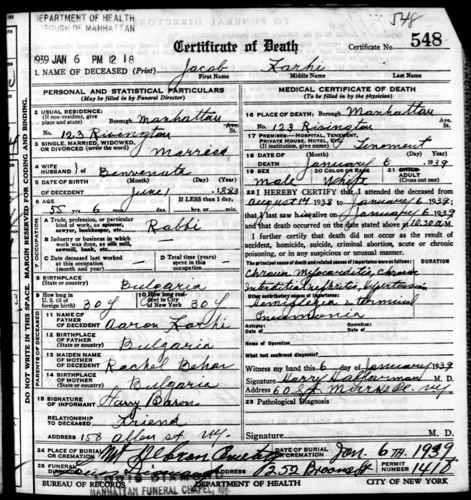 548
DEPARTMENT OF HEALTH
BOROUGH OF MANHATTAN
1939 JAN 6 PM 12 18
Certificate of Death
Certificate No. 548
1. NAME OF DECEASED (Print) Jacob
First Name Middle Name Last Name
PERSONAL AND STATISTICAL PARTICULARS
(May be filled in by Funeral Director)
2 USUAL RESIDENCE: (If non-resident, give place and state) Borough Manhattan
No. 123 Rivington Ave. St.
3 SINGLE, MARRIED, WIDOWED, OR DIVORCED (write the word) Married
4 WIFE HUSBAND of Benvenuta
5 DATE OF BIRTH OF DECEDENT (Month) (Day) (Year)
June 1 1883
6 AGE 55 yrs. 6 mos. If LESS than 1 day,
7 OCCUPATION
A Trade, profession, or particular kind of work, as spinner, sawyer, bookkeeper, etc. Rabbi
B Industry or business in which work was done, as silk mill, sawmill, bank, etc.
C Date deceased last worked at this occupation (month and year)
D Total time (years) spent in this occupation
8 BIRTHPLACE (State or country) Bulgaria
9 How long in U. S. (if of foreign birth) 30 y
How long resident in City of New York 30 y
PARENTS OF DECEDENT
11 NAME OF FATHER OF DECEDENT Aaron
12 BIRTHPLACE OF FATHER (State or country) Bulgaria
13 MAIDEN NAME OF MOTHER OF DECEDENT Rachel Behar
14 BIRTHPLACE OF MOTHER (State or country) Bulgaria
15 SIGNATURE OF INFORMANT Harry Baron
RELATIONSHIP TO DECEASED Friend
ADDRESS 158 Allen St. NY.
MEDICAL CERTIFICATE OF DEATH
(To be filled in by the physician)
16 PLACE OF DEATH: Borough Manhattan
No. 123 Rivington Ave. St.
Tenement
18 DATE OF DEATH (Month) (Day) (Year)
January 6 1939
19 SEX Male
20 COLOR OR RACE White
22 I HEREBY CERTIFY that I attended the deceased
from August 14 1938 to January 6 1939
that I last saw him alive on January 6 1939
and that death occurred on the date stated above at 10:30 a M.
I further certify that death did not occur as the result of
accident, homicide, suicide, criminal abortion, acute or chronic
poisoning, or in any suspicious or unusual manner.
The principal cause of death and related causes of importance were as follows: DURATION
chronic myocarditis, chronic
interstitial nephritis, hypertension
Other contributory causes of importance:
hemiplegia & terminal
Pneumonia
Operation
Date of
What test confirmed diagnosis?
Witness my hand this 6 day of January 1939
Signature Harry M. D.
Address
23 Pathological Diagnosis
Signature M. D.
24 PLACE OF BURIAL OR CREMATION Mt Hebron Cemetery
DATE OF BURIAL OR CREMATION Jan. 6th 1939
25 FUNERAL DIRECTOR
ADDRESS 250 Broome St
PERMIT NUMBER 1418
BUREAU OF RECORDS DEPARTMENT OF HEALTH CITY OF NEW YORK
MANHATTAN FUNERAL CHAPEL, INC.
DO NOT WRITE IN THIS SPACE. MARGIN RESERVED FOR CODING AND BINDING.